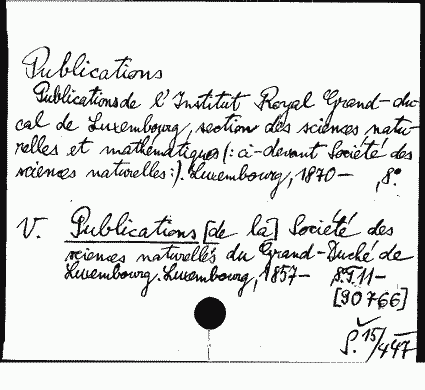 Publications
Publications de l'Institut Royal Grand-du-
cal de Luxembourg, section des sciences natu-
relles et mathématiques (: ci-devant Société des
sciences naturelles :). Luxembourg, 1870- , 8°.
V. Publications [de la] Société des
sciences naturelles du Grand-Duché de
Luxembourg. Luxembourg, 1857-
[90766]
15/447